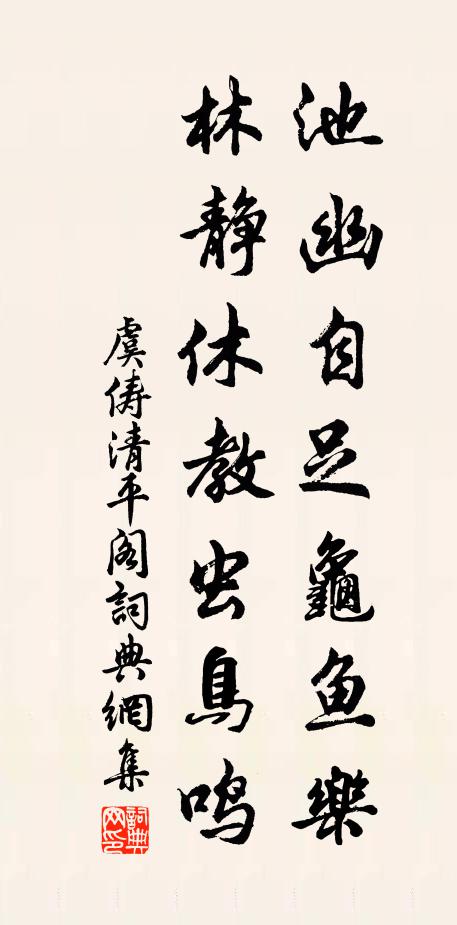 池幽自足龜魚樂
林静休教虫鳥鳴
虞儔清平阁詞典網集
詞典网印